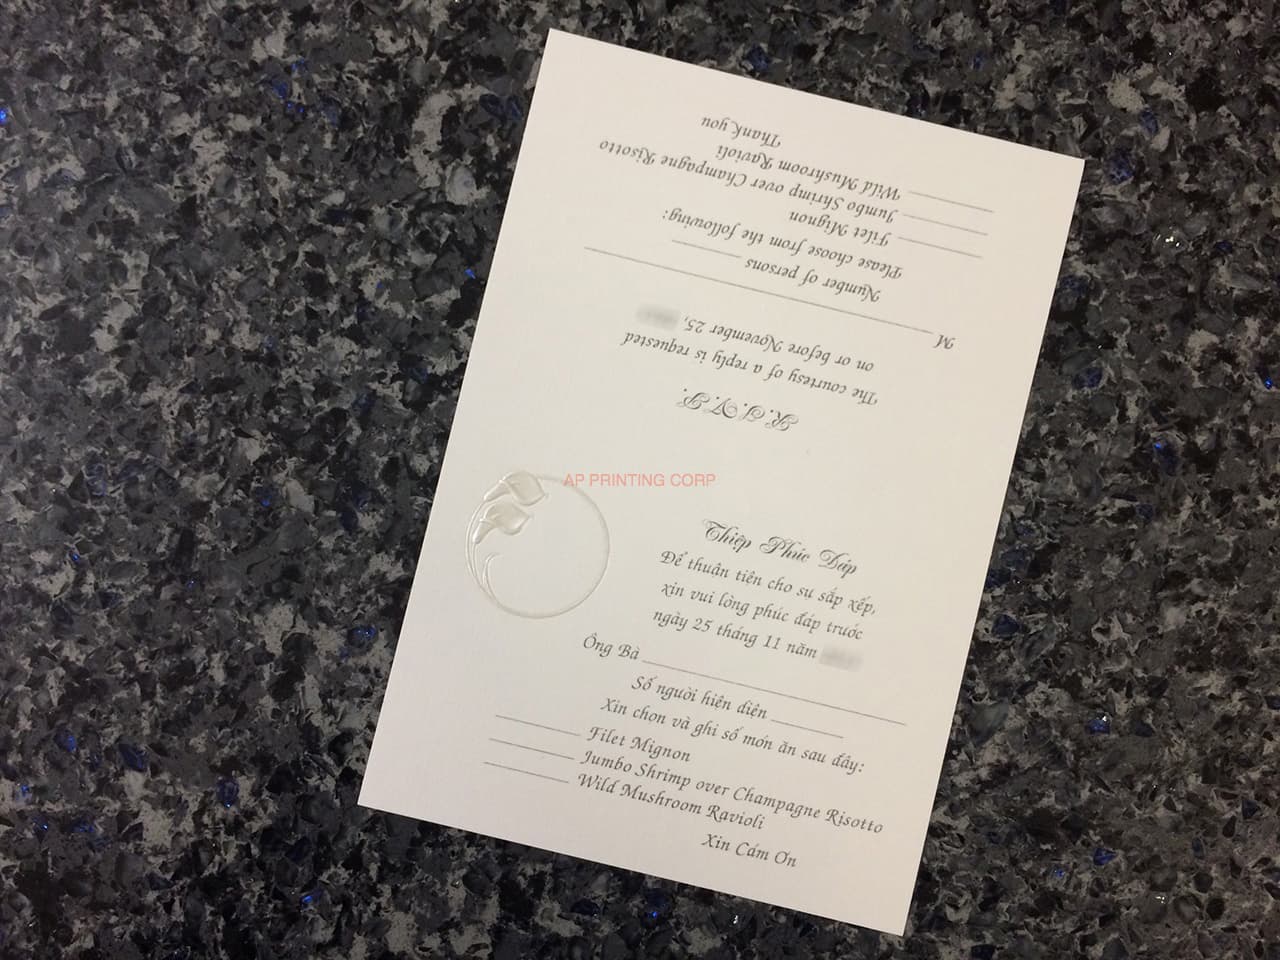 R.S.V.P.
The courtesy of a reply is requested
on or before November 25,
M
Number of persons
Please choose from the following:
Filet Mignon
Jumbo Shrimp over Champagne Risotto
Wild Mushroom Ravioli
Thank you
AP PRINTING CORP
Thiệp Phúc Đáp
Để thuân tiên cho sư sắp xếp,
xin vui lòng phúc đáp trước
ngày 25 tháng 11 năm
Ông Bà
Số người hiện diện
Xin chon và ghi số món ăn sau đây:
Filet Mignon
Jumbo Shrimp over Champagne Risotto
Wild Mushroom Ravioli
Xin Cám Ơn